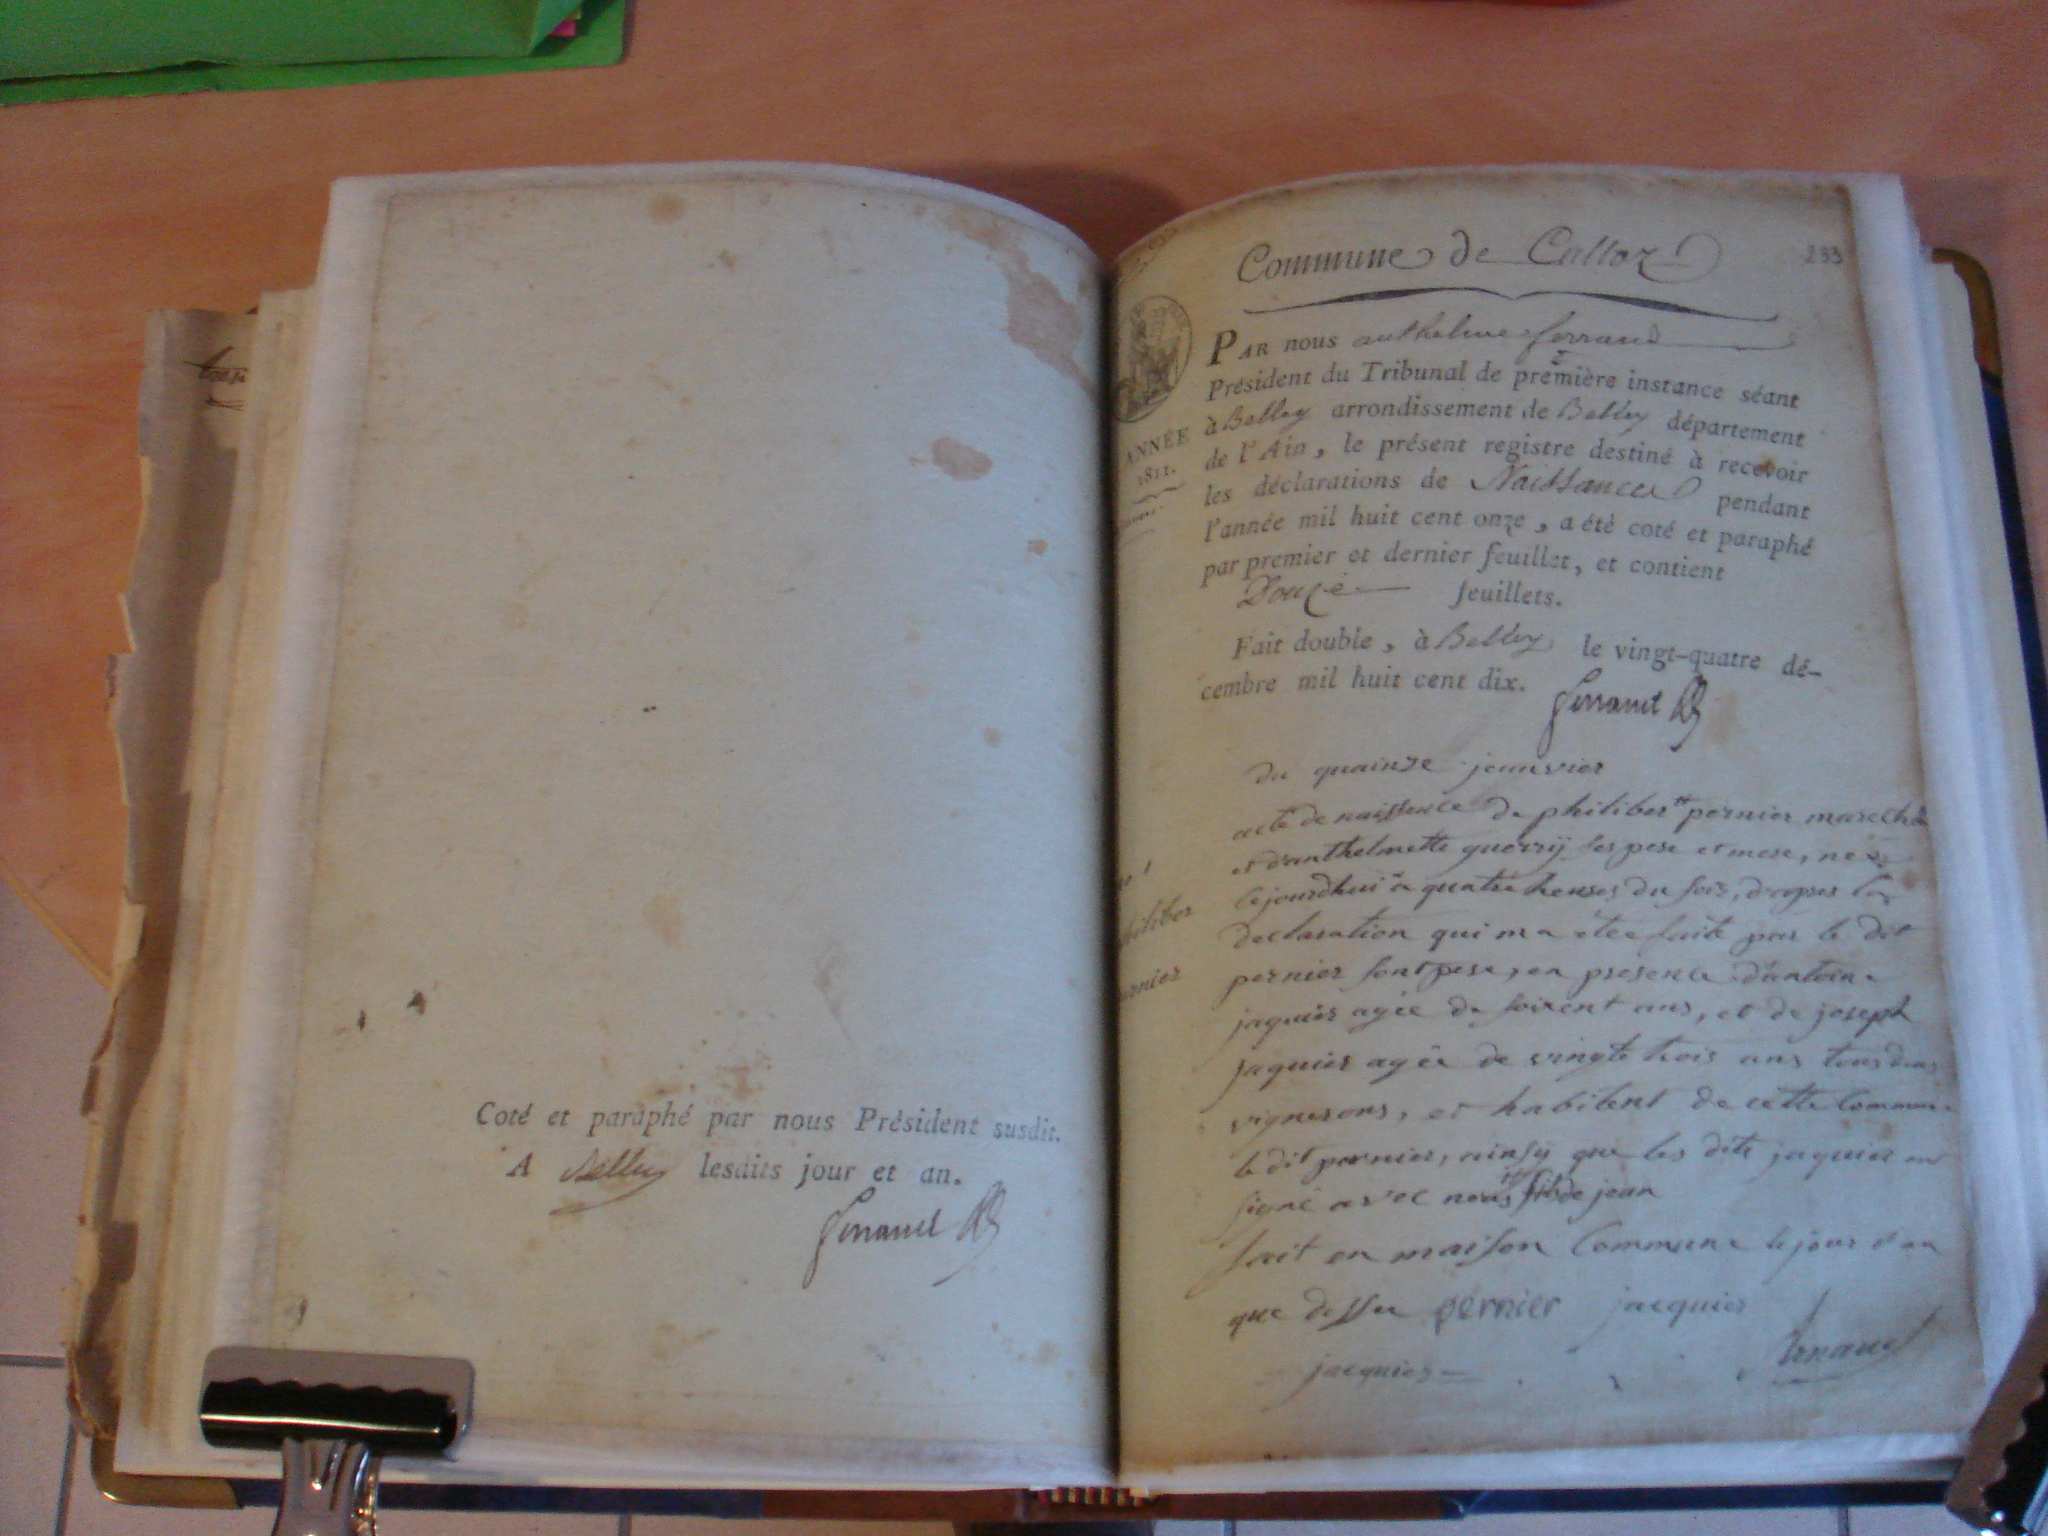 Coté et paraphé par nous Président susdit.
A Belley lesdits jour et an.
Ferrand
Commune de Culloz
233
ANNÉE
1811.
PAR nous anthelme ferrand
Président du Tribunal de première instance séant
à Belley arrondissement de Belley département
de l'Ain, le présent registre destiné à recevoir
les déclarations de Naissances pendant
l'année mil huit cent onze, a été coté et paraphé
par premier et dernier feuillet, et contient
Douze feuillets.
Fait double, à Belley le vingt-quatre dé-
cembre mil huit cent dix.
Ferrand
du quainze jeanvier
acte de naissence de philibert pernier marech
et d'anthelmette guerry ses pere et mere, nee
lejourdhui a quatre heures du soir, drapres la
declaration qui m a étée faite par le dit
pernier sont pere, en presence d'antoine
jaquier agée de soixent ans, et de joseph
jaquier agée de vingte trois ans tous deux
vignerons, et habitent de cette Commune
le dit pernier, ainsy que les dits jaquier on
signé avec nous fils de jean
fait en maison Commune le jour et an
que dessu pérnier jacquier
jacquier
philiber
ernier